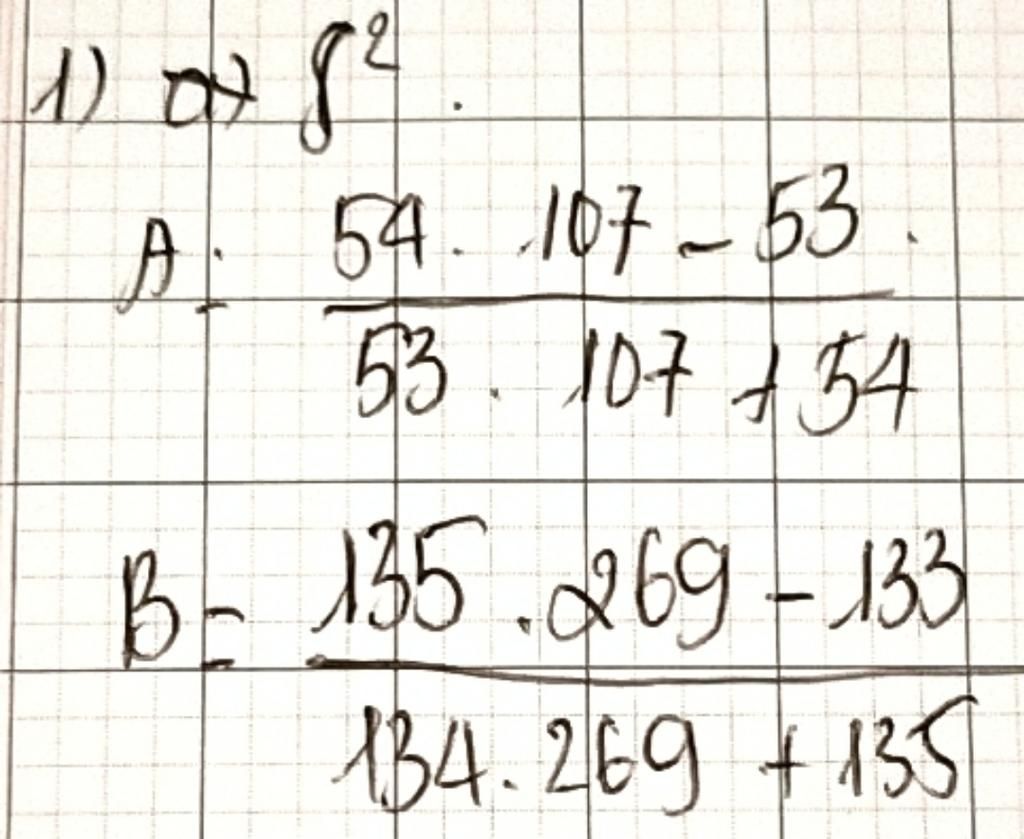 1) a) S²
A = 54 . 107 - 53
53 . 107 + 54
B = 135 . 269 - 133
134 . 269 + 135